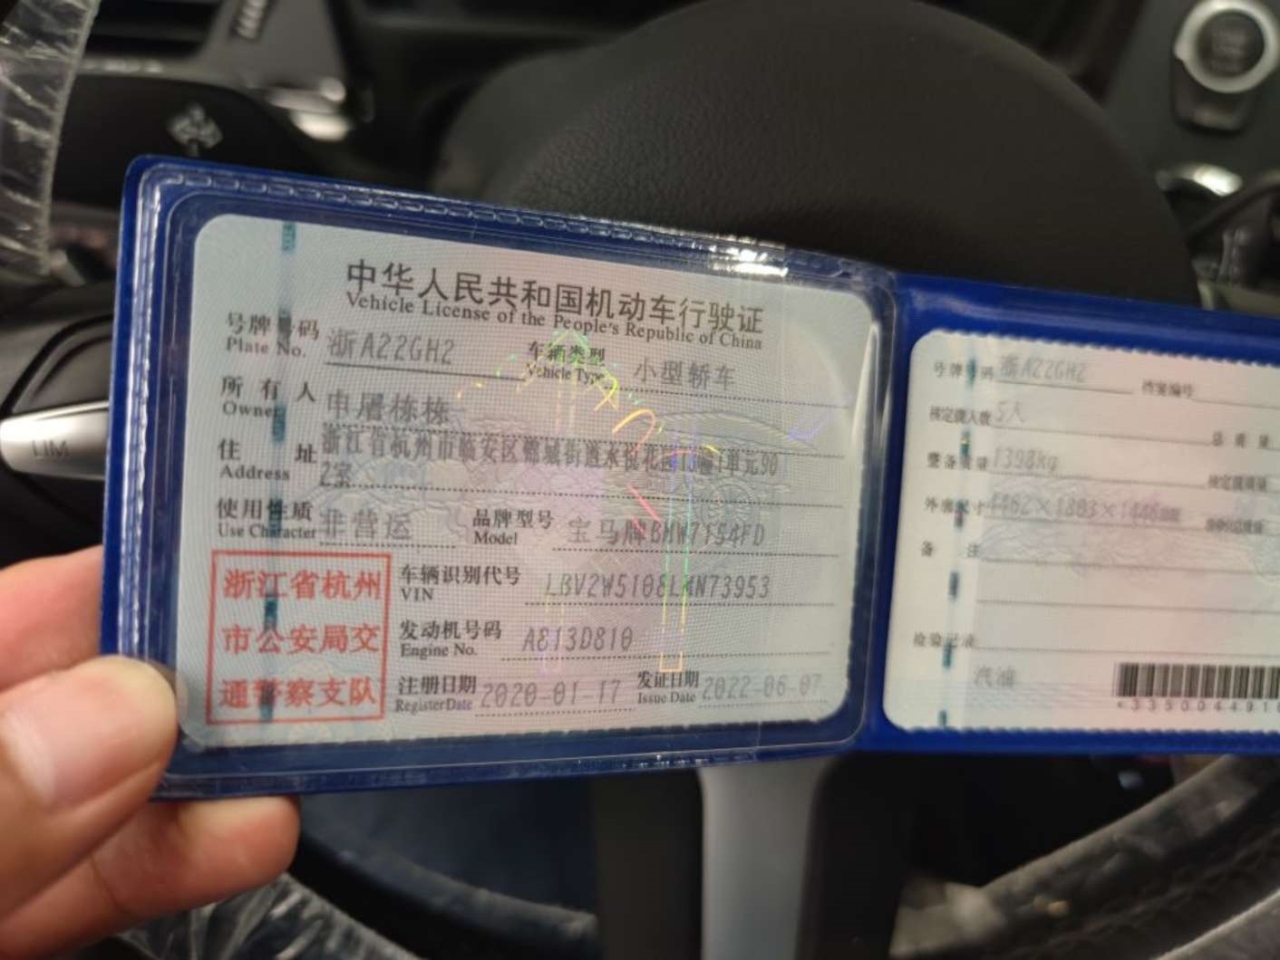 中华人民共和国机动车行驶证
Vehicle License of the People's Republic of China
号牌号码 浙A22GH2 车辆类型 小型轿车
Plate No. Vehicle Type
所有人 申屠栋栋
Owner
住址 浙江省杭州市临安区锦城街道水悦花园13幢1单元90
Address 2室
使用性质 非营运 品牌型号 宝马牌BMW7154FD
Use Character Model
浙江省杭州
市公安局交
通警察支队
车辆识别代号
VIN
发动机号码 A813D810
Engine No.
注册日期 2020-01-17 发证日期 2022-06-07
Register Date Issue Date
号牌号码 浙A22GH2 档案编号
核定载人数 5人 总质量
整备质量 1398kg 核定载质量
外廓尺寸
备注
检验记录
汽油
LIM